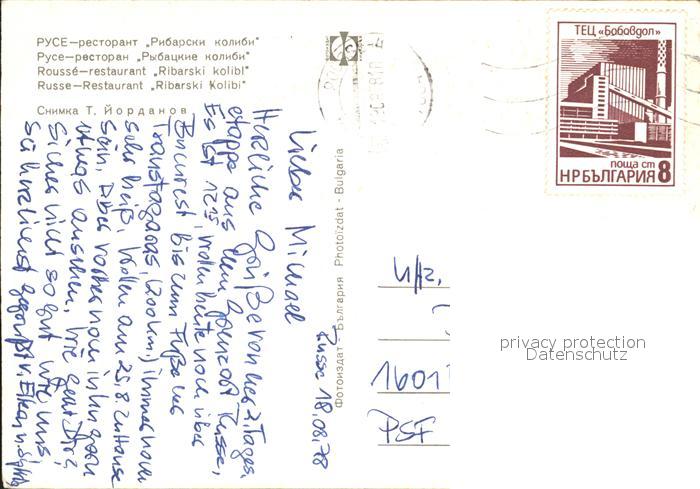 РУСЕ—ресторант „Рибарски колиби"
Русе—ресторан „Рыбацкие колиби"
Roussé—restaurant „Ribarski kolibl"
Russe—Restaurant „Ribarski Kolibi"
Снимка Т. Йорданов
Фотоиздат - България Photoïzdat - Bulgaria
ТЕЦ «Бобовдол»
поща ст
НР БЪЛГАРИЯ 8
Russe 18.08.78
Lieber Michael
Herzliche Grüße von der 2. Tages-
etappe aus dem Grenzort Russe,
Es ist 12 15, wollen heute noch über
Bucurest bis zum Fuße des
(200 km.) immer noch
sehr heiß. Wollen am 25.8. zu Hause
sein, aber vorher noch in Ungarn
etwas ausruhen. Wie geht's Dir,
sicher nicht so gut wie uns,
sei herzlichst gegrüßt v.
1601
PSF
privacy protection
Datenschutz